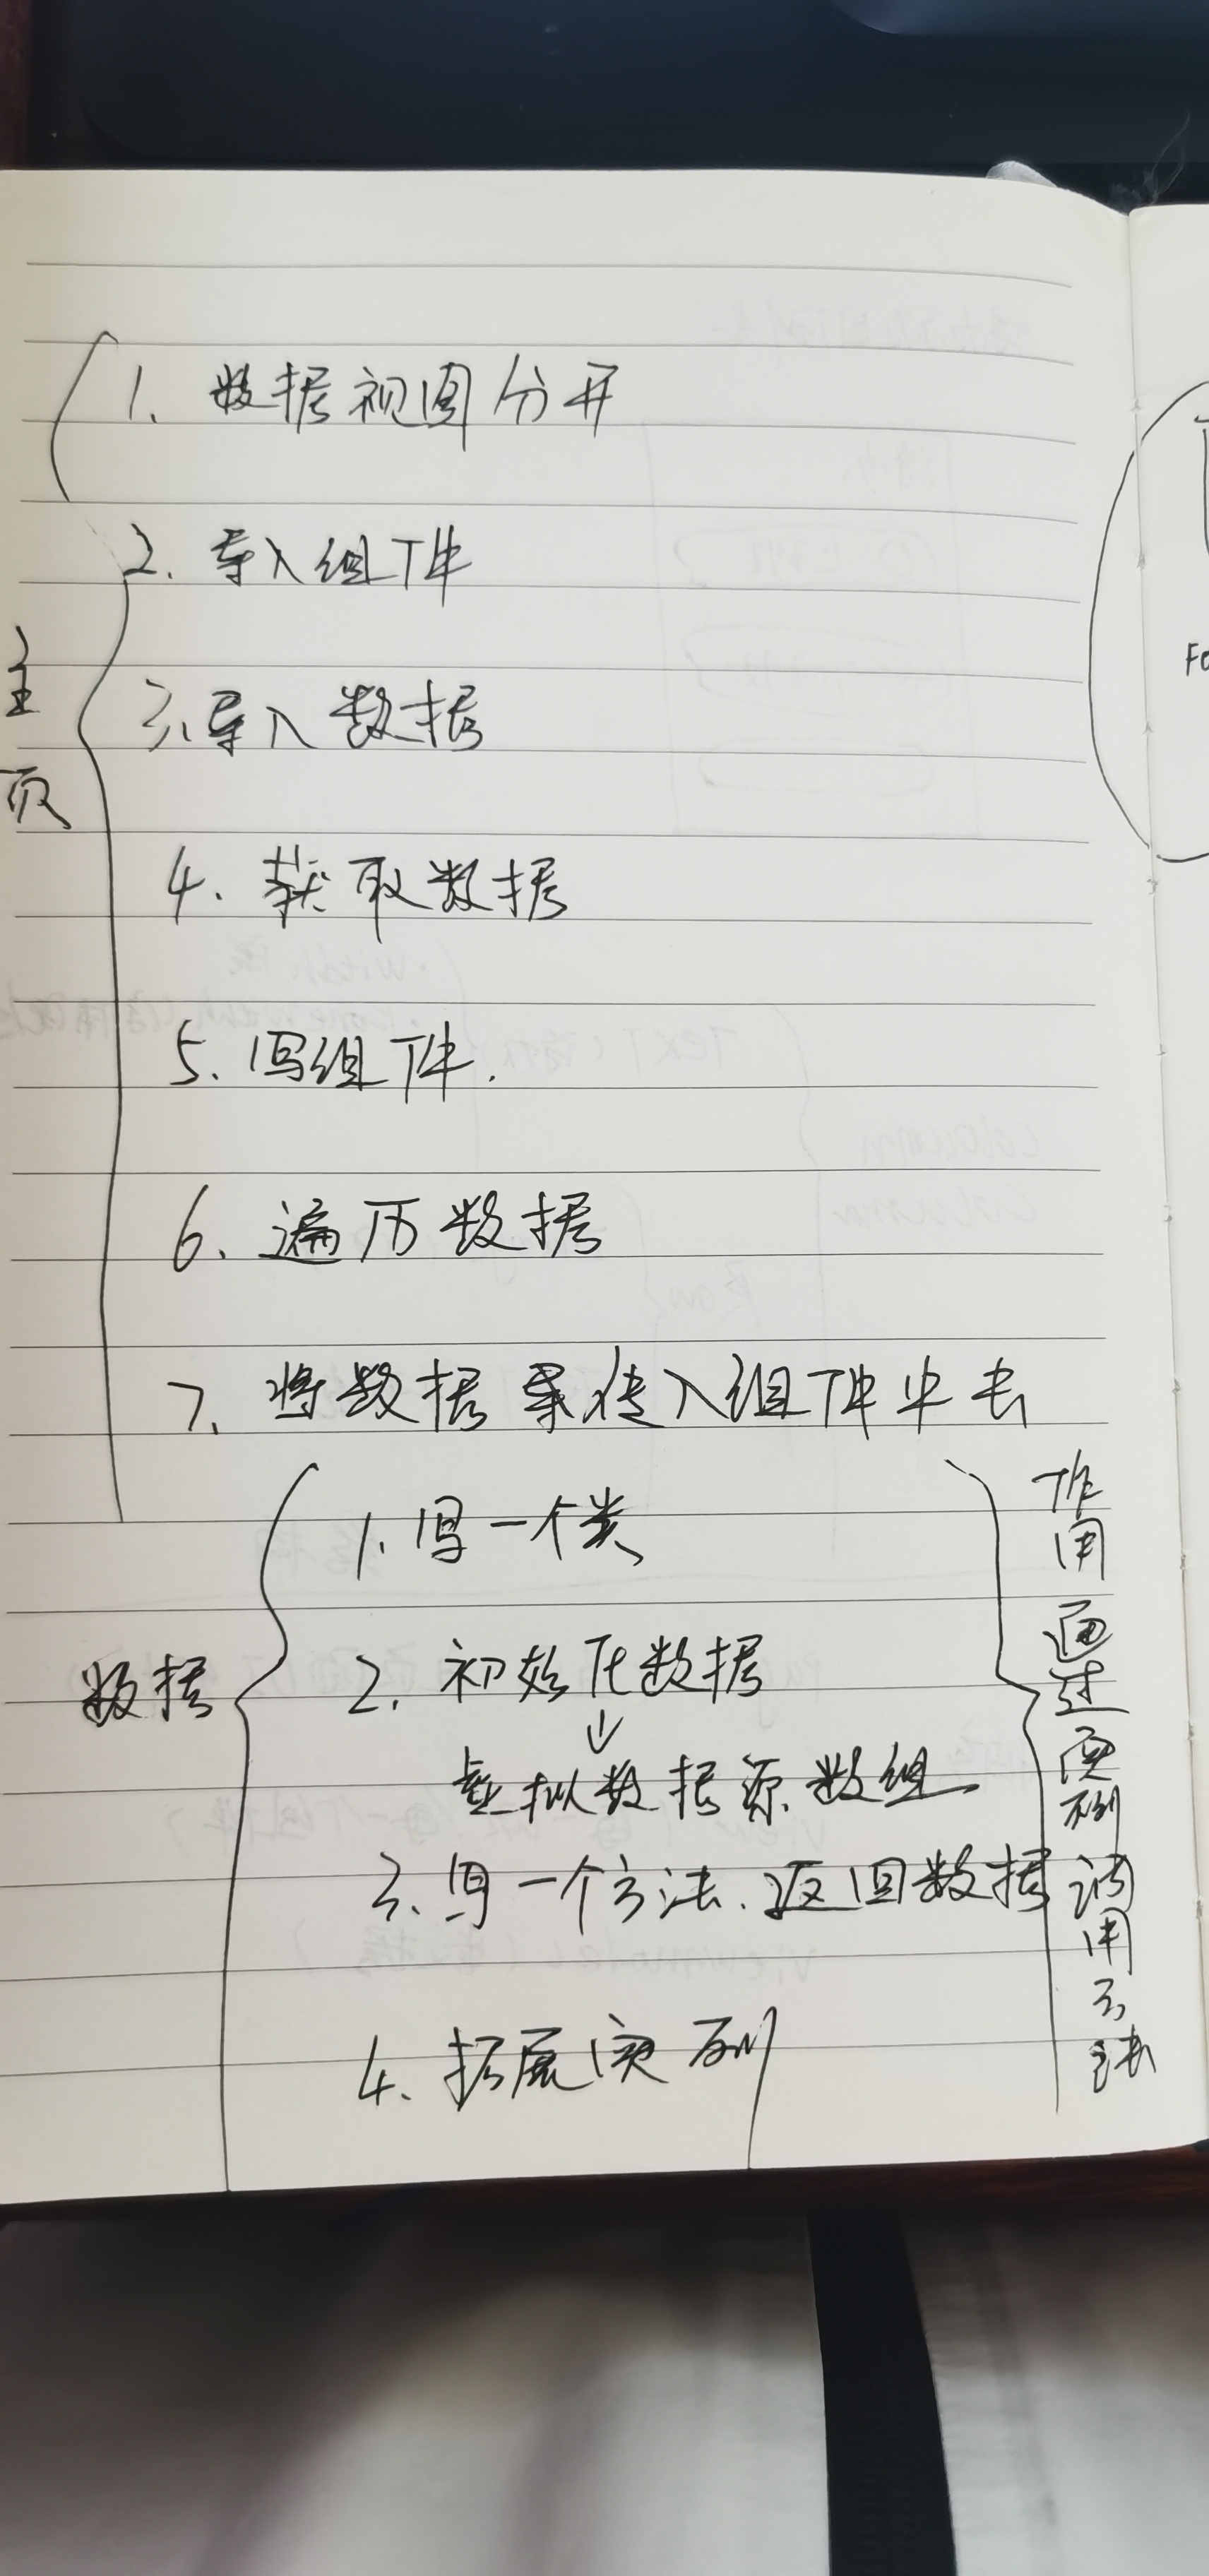 1、数据视图分开
2、导入组件
主页
3、导入数据
4、获取数据
5、写组件.
6、遍历数据
7、将数据传入组件中去
1、写一个类
2、初始化数据
↓
数据
虚拟数据源数组
3、写一个方法、返回数据
4、拓展实例
作用通过实例调用方法
Fo